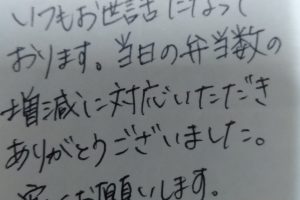 いつもお世話になって
おります。当日の弁当数の
増減に対応いただき
ありがとうございました。
お願いします。